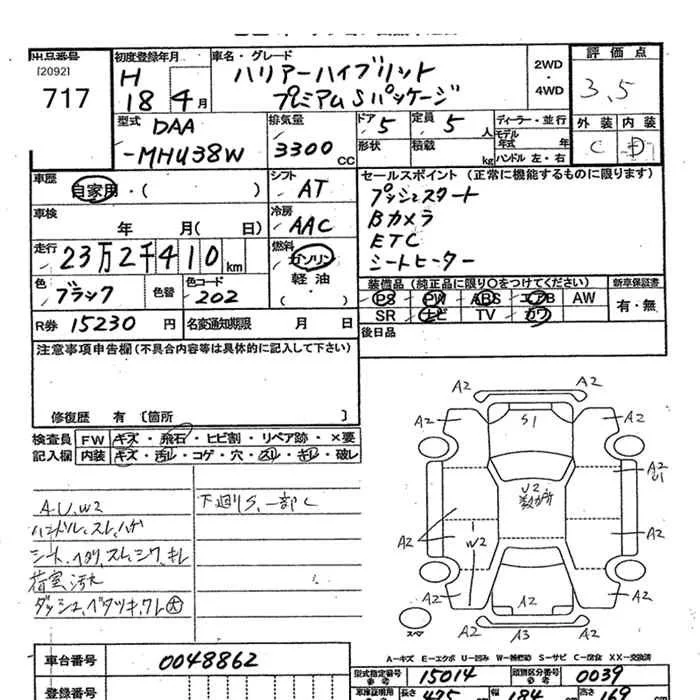 出品番号
[2092]
717
初度登録年月
H
18年4月
車名・グレード
ハリアーハイブリット
プレミアムSパッケージ
2WD
・
4WD
評価点
3.5
外装 内装
C D
型式 DAA
-MHU38W
排気量
3300 CC
ドア 5
形状
定員 5 人
積載 kg
ディーラー・並行
モデル年式 年
ハンドル 左・右
車歴
自家用・( )
シフト AT
車検
年 月( 日)
冷房 AAC
走行 23万2千410km
燃料
ガソリン
軽油
・( )
色 ブラック
色替
色コード 202
R券 15230円
名変通知期限 月 日
セールスポイント(正常に機能するものに限ります)
プッシュスタート
Bカメラ
ETC
シートヒーター
装備品(純正品に限り○をつけてください)
新車保証書
PS PW ABS エアB AW
SR ナビ TV カワ
有・無
後日品
注意事項申告欄(不具合内容等は具体的に記入して下さい)
修復歴 有〔箇所 〕
検査員記入欄
FW キズ・飛石・ヒビ割・リペア跡・×要
内装 キズ・汚レ・コゲ・穴・スレ・キレ・破レ
A.U.W2
ハンドル、スレ、ハゲ
シート、ヘタリ、スレ、シワ、キレ
荷室汚れ
ダッシュ、ベタツキ、ワレ大
下廻りS、一部C
A2 A2
A2 S1 A2
A2 U1
U2 数カ所
A2 W2 A2
A2 A2 A2
A2 A3 A2
スペア
A-キズ E-エクボ U-凹み W-補修跡 S-サビ C-腐食 XX-交換済
車台番号 0048862
登録番号
型式指定番号 15014
類別区分番号 0039
長さ 475 幅 184 高さ 169